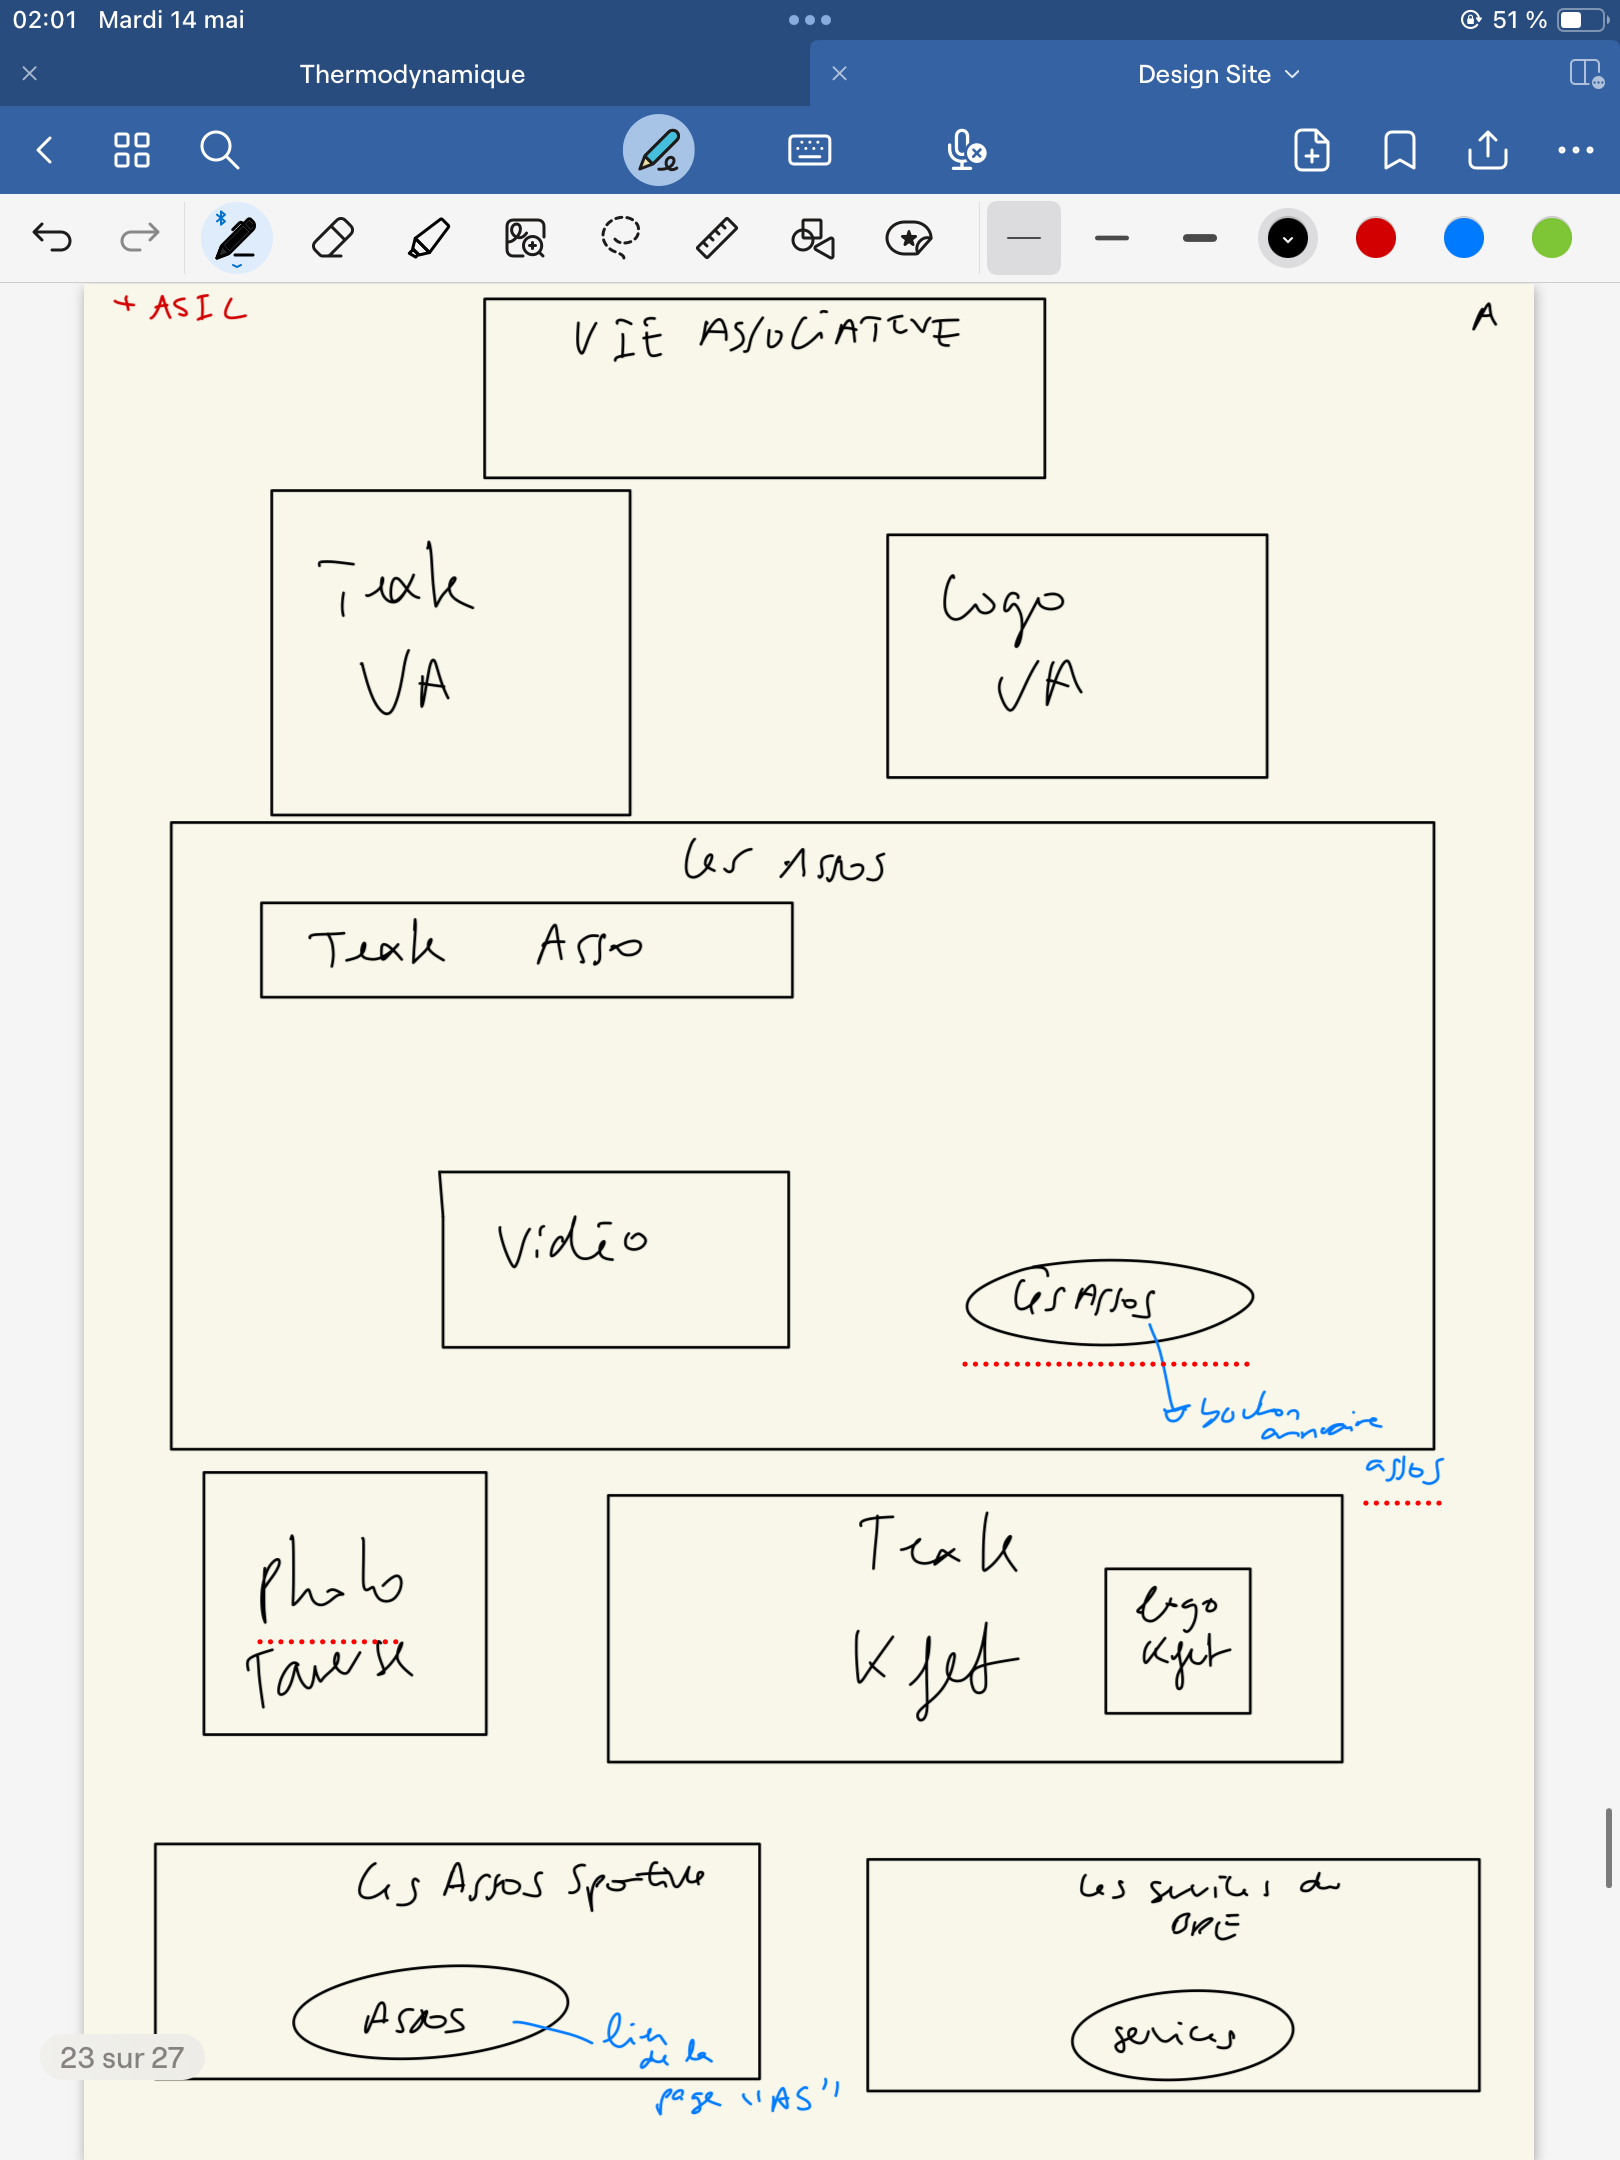 02:01 Mardi 14 mai
51 %
Thermodynamique
Design Site
+ ASIL
A
VIE ASSOCIATIVE
Texte
VA
Logo
VA
Les Assos
Texte Asso
Vidéo
Les Assos
bouton
annuaire
assos
Photo
Taverse
Texte
Kfet
Logo
Kfet
Les Assos Sportive
Assos
lien
de la
page "AS"
Les services du
BDE
services
23 sur 27